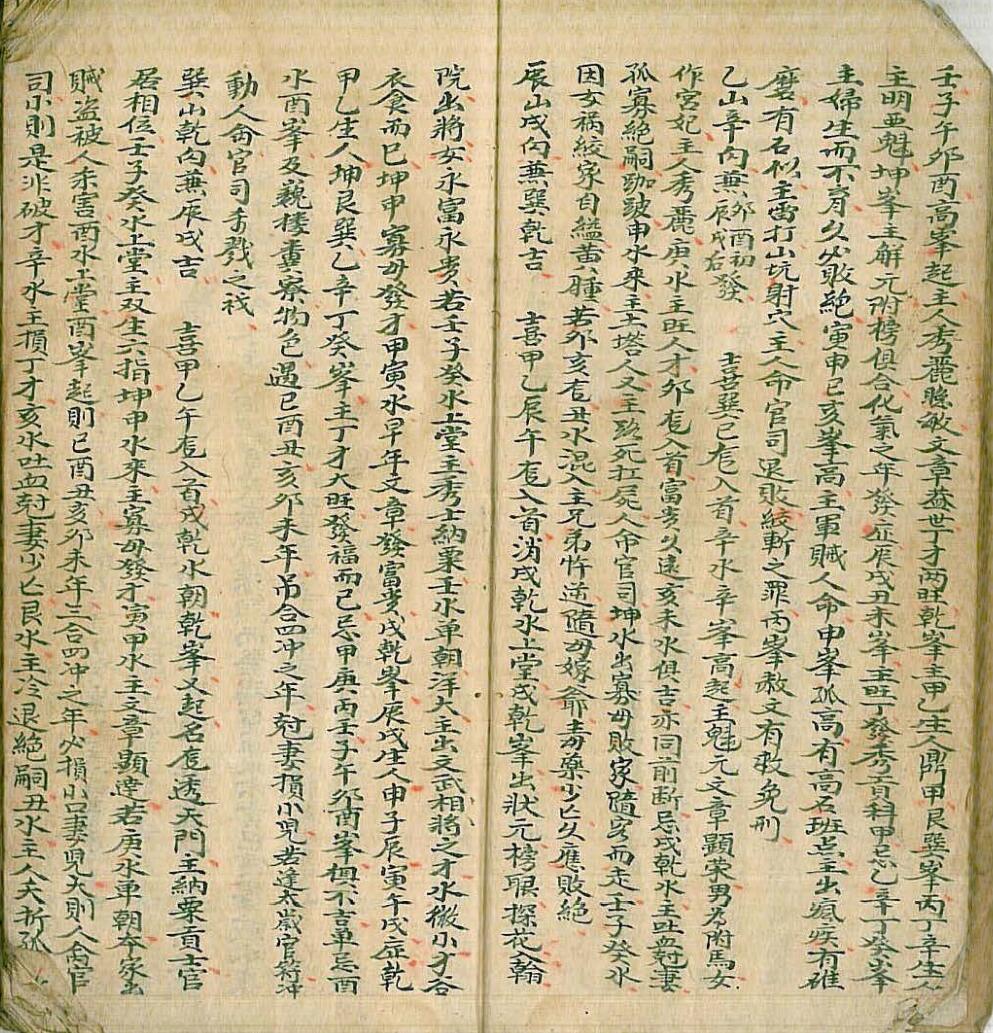 壬子午卯酉高峯起主人秀麗聰敏文章盖世丁才兩旺乾峯主甲乙生人鼎甲艮巽峯丙丁辛生人
主明亜魁坤峯主解元附榜俱合化氣之年發应辰戌丑未峯主旺丁發秀育科甲忌乙辛丁癸峯
主婦生而不育久必敗絕寅申巳亥峯高主軍賊人命申峯孤高有高石班点主出瘋疾有碓
磨有石似主雷打山坑射穴主人命官司退敗絞斬之罪丙峯赦文有救免刑
乙山辛向兼卯酉初發辰戌右 主喜巽巳龍入首辛水辛峯高起主魁元文章顯荣男為附馬女
作宫妃主人秀麗庚水主旺人才卯龍入首富贵久遠亥未水俱吉亦同前断忌戌乾水主吐血尅妻
孤寡絕嗣跏跛申水來主土塔人又主路死扛屍人命官司坤水出寡母敗家隨客而走壬子癸水
因女禍絞家自縊黄腫若卯亥龍丑水混入主兄弟忤逆隨母嫁爺毒藥少亡久應敗絕
辰山戌向兼巽乾吉 主喜甲乙辰午龍入首消戌乾水上堂戌乾峯出狀元榜眼探花入翰
院出將女永富永贵若壬子癸水上堂主秀士納粟壬水单朝洋大主出文武相將之才水微小才合
衣食而已坤申寡母發才甲寅水早年文章發富贵戌乾峯辰戌生人申子辰寅午戌应乾
甲乙生人坤艮巽乙辛丁癸峯主丁才大旺發福而已忌甲庚丙壬子午卯酉峯俱不吉单忌酉
水酉峯及巍楼重寮物色遇巳酉丑亥卯未年吊合四冲之年尅妻損小児若逢太歲官符冲
動人命官司手戮之祸
巽山乾向兼辰戌吉 主喜甲乙午龍入首戌乾水朝乾峯又起名龍透天門主納粟貢士官
居相位壬子癸水上堂主双生六指坤申水來主寡母發才寅甲水主文章顯達若庚水单朝本家出
賊盗被人杀害酉水上堂酉峯起則巳酉丑亥卯未年三合四冲之年必損小口妻児大則人命官
司小則是非破才辛水主損丁才亥水吐血尅妻少亡艮水主冷退絕嗣丑水主人夭折孤